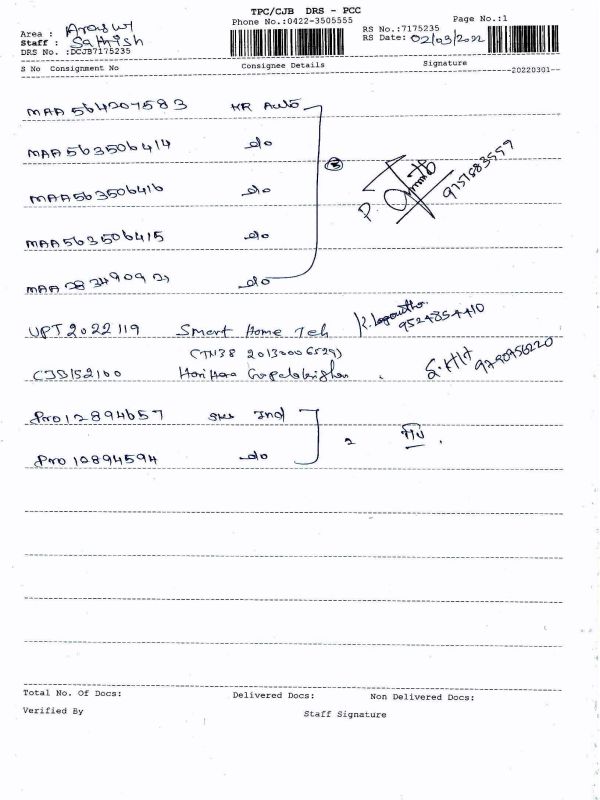 TPC/CJB DRS - PCC
Phone No.:0422-3505555
Page No.:1
Area :
Staff : Sathish
DRS No. :DCJB7175235
RS No.:7175235
RS Date: 02/03/2022
S No Consignment No Consignee Details Signature
--20220301--
MAA 564207583 KR Auto
MAA563506414 do
MAA563506416 do
MAA563506415 do
5
P. 9751683559
MAA 283490921 do
UPT2022119 Smart Home Teh 9524854410
(TN38 20130006529)
CJB152100 Hari Hara Gopalakrishnan S. HIH 9790956220
Pro 12894657 Ind
Pro 10894594 do
2
Total No. Of Docs: Delivered Docs: Non Delivered Docs:
Verified By Staff Signature